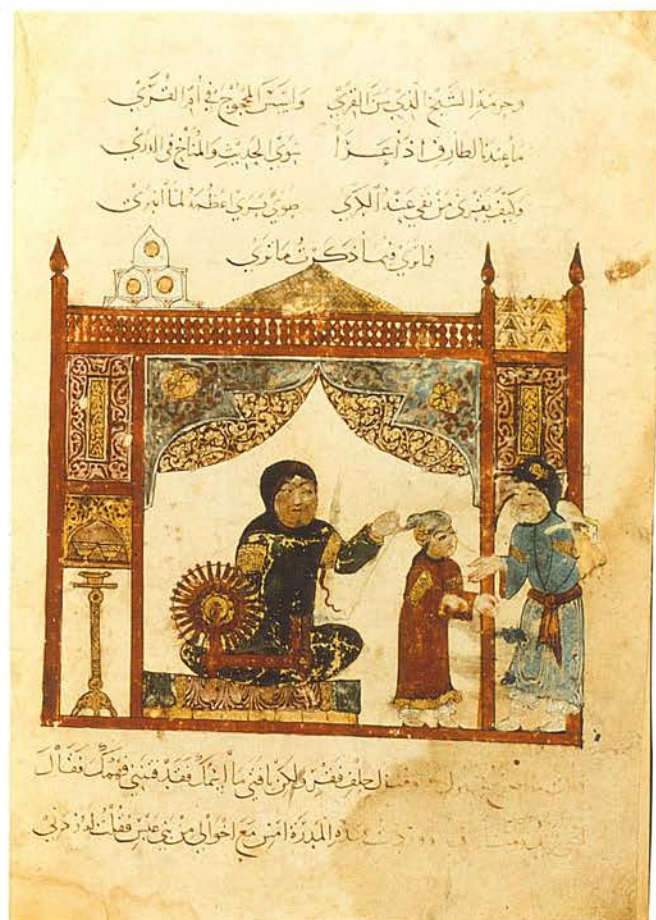 وحرمة الشيخ الذي سن القرى وأسس المحجوج في أم القرى
ما عندنا لطارق إذا عرا سوى الحديث والمناخ في الذرى
وكيف يقري من نفى عنه الكرى طوى برى أعظمه لما انبرى
فما ترى فيما ذكرت ما ترى
حلف فقر ولكن يا فتى ما اسمك فقد فتنني فهمك فقال
هذه المدرة امس مع اخوالي من بني عبس فقلت له زدني